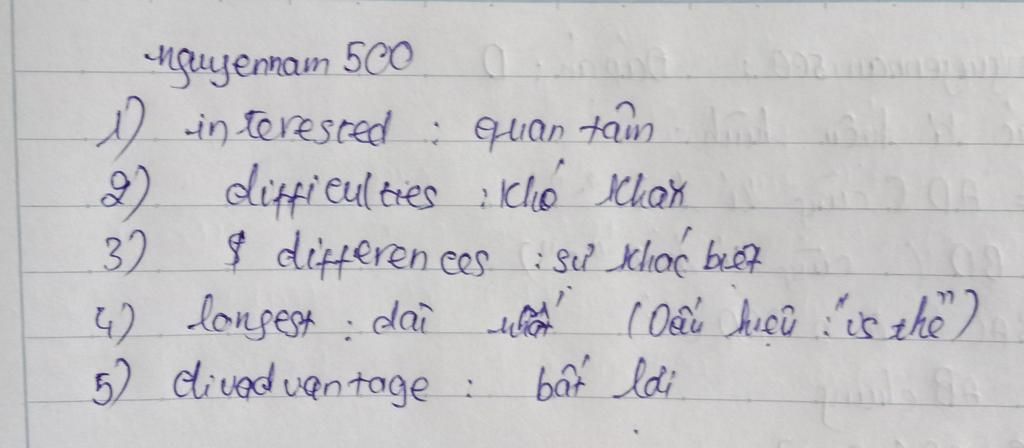 nguyennam 500
1) interested : quan tâm
2) difficulties : khó khăn
3) differences : sự khác biệt
4) longest : dài nhất (Dấu hiệu : "is the")
5) divadvantage : bất lợi